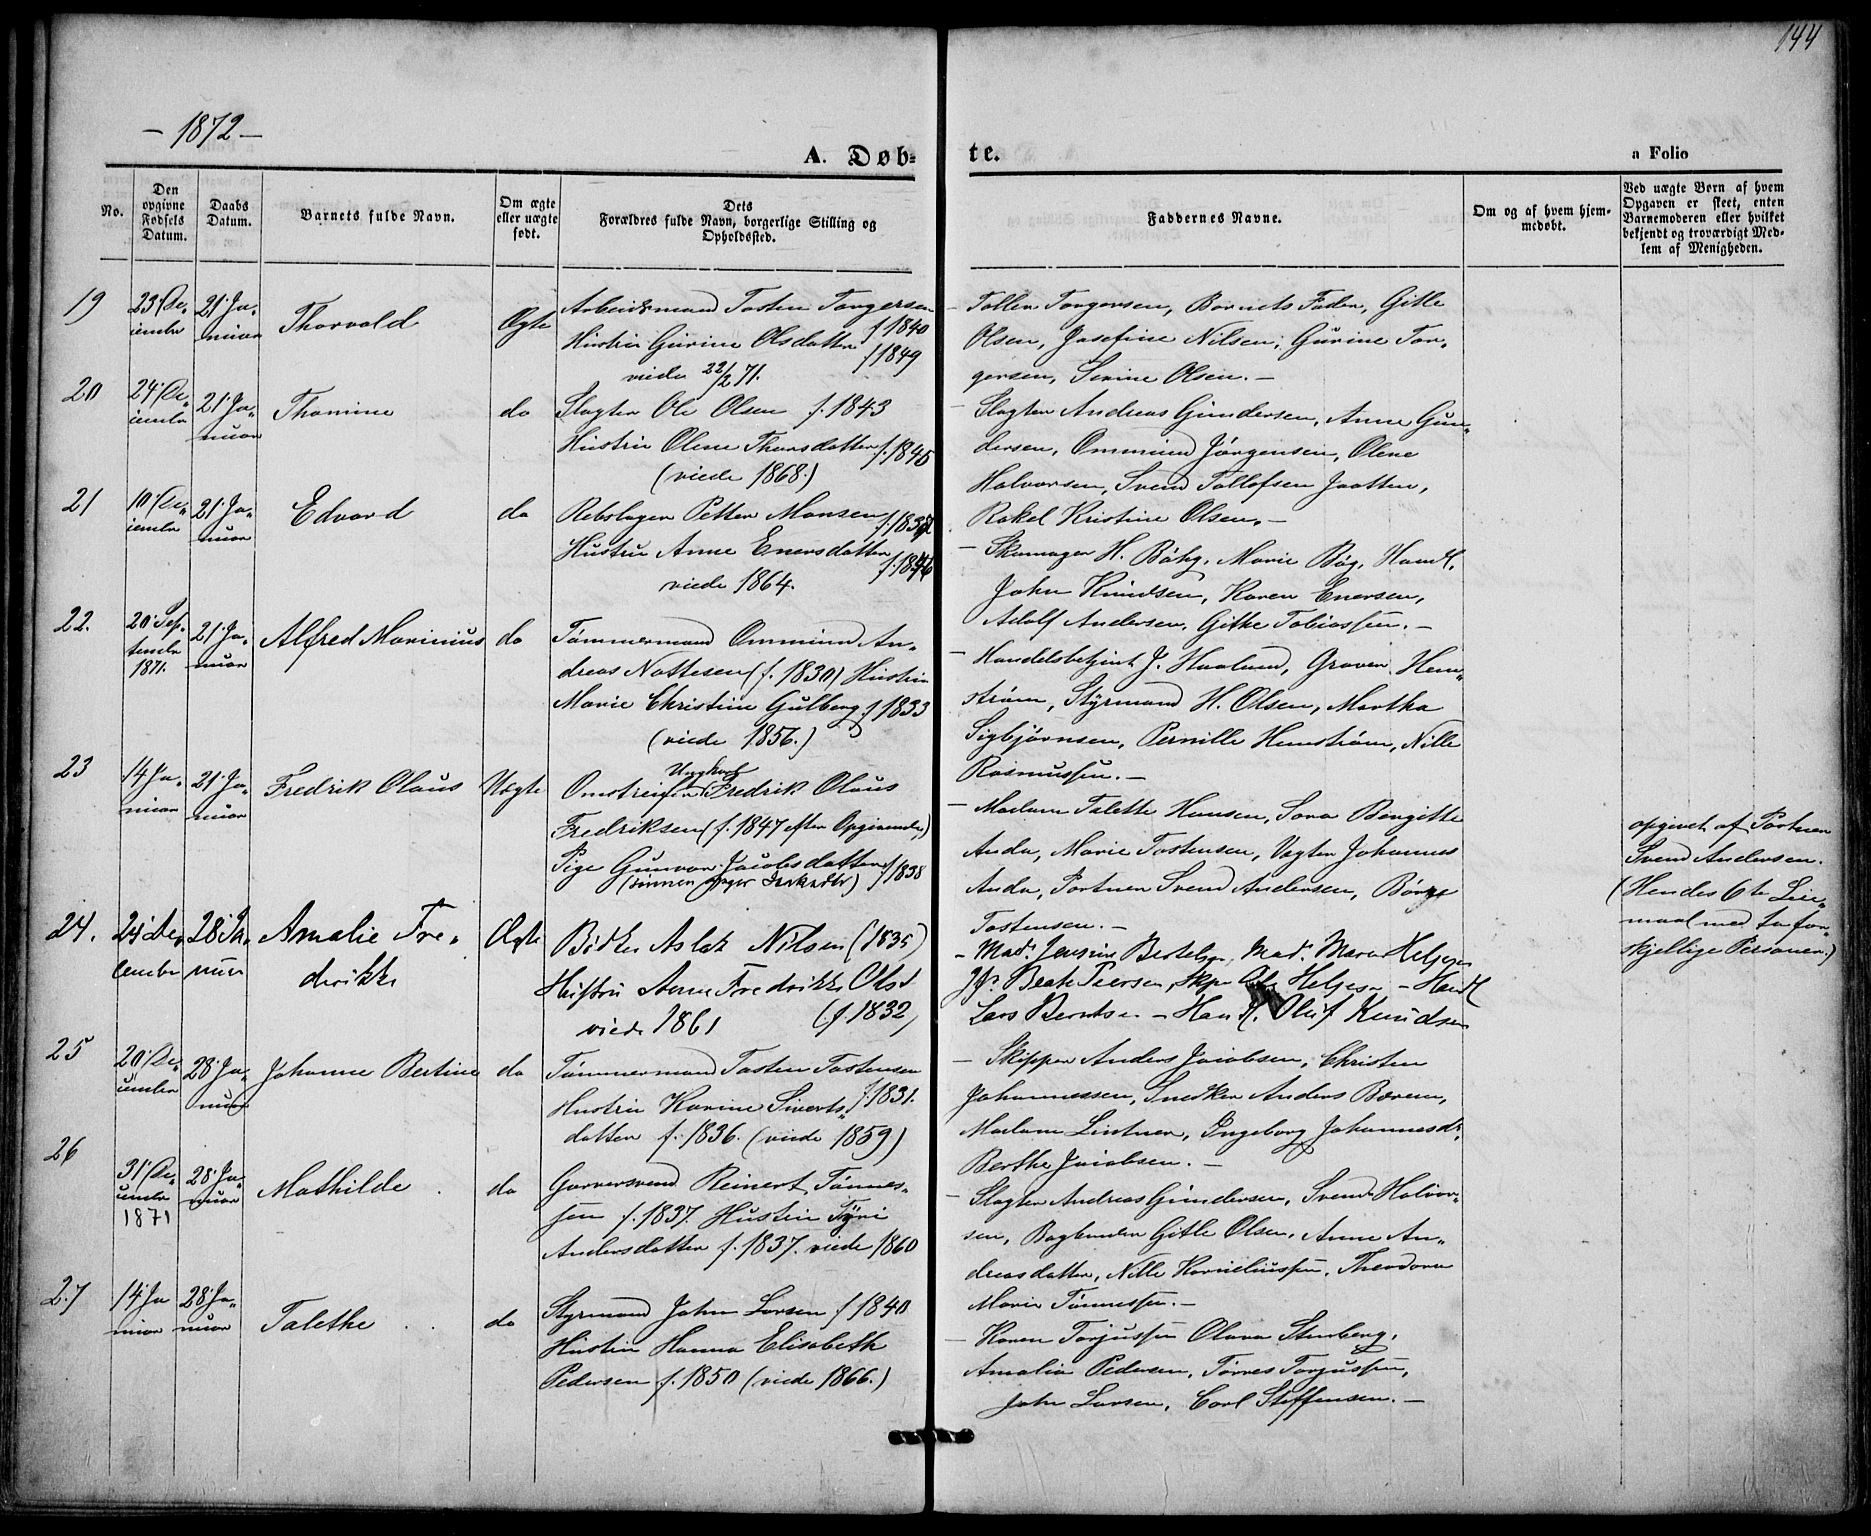 144
- 1872 -
A. Døb-
te.
a Folio
No.
Den opgivne Fødsels Datum.
Daabs Datum.
Barnets fulde Navn.
Om ægte eller uægte født.
Dets Forældres fulde Navn, borgerlige Stilling og Opholdssted.
Faddernes Navne.
Om og af hvem hjemmedøbt.
Ved uægte Børn af hvem Opgaven er skeet, enten Barnemoderen eller hvilket bekjendt og troværdigt Medlem af Menigheden.
19
23' De-
cember
21' Ja-
nuar
Thorvald
Ægte
Arbeidsmand Tosten Torgersen
f 1840
Hustru Gurine Olsdatter
f 1849
viede 22/2 71.
Tollen Torgersen, Barnets Fader, Gitle
Olsen, Josefine Nilsen, Gurine Tor-
gersen, Serine Olsen. -
20
24' De-
cember
21' Ja-
nuar
Thomine
do
Slagter Ole Olsen f. 1843
Hustru Olene Thorsdatter f. 1845
(viede 1868.)
- Slagter Andreas Gundersen, Anne Gun-
dersen, Ommund Jørgensen, Olene
Halvorsen, Svend Tollefsen Jaatten,
Rakel Kristine Olsen. -
21
10' De-
cember
21' Ja-
nuar
Edvard
do
Rebslager Petter Monsen
Hustru Anne Enersdatter
viede 1864.
- Skomager H. Bøhg, Marie Bøg, Handl.
John Knudsen, Karen Enersen,
Adolf Andersen, Gitke Tobiassen. -
22.
20' Sep-
tember
1871.
21' Ja-
nuar
Alfred Marinius
do
Tømmermand Ommund An-
dreas Nottesen (f. 1830) Hustru
Marie Christine Gulberg f 1833
(viede 1856.)
- Handelsbetjent J. Haaland, Graver Hem-
strøm, Styrmand H. Olsen, Martha
Sigbjørnsen, Pernille Hemstrøm, Nille
Rasmussen. -
23
14' Ja-
nuar
21' Ja-
nuar
Fredrik Olaus
Uægte
Ungkarl
Omstreifer Fredrik Olaus
Fredriksen (f. 1847 efter Opgivende)
Pige Gunvor Jacobsdatter f 1838
- Madam Talette Hansen, Sara Bergitte
Anda, Marie Tostensen, Vægter Johannes
Anda, Portner Svend Andersen, Børge
Tostensen. -
opgivet af Portner
Svend Andersen.
(Hendes 6te Leier-
maal med to for-
skjellige Personer.)
24.
24' De-
cember
28' Ja-
nuar
Amalie Fre-
derikke
Ægte
Bødker Aslak Nilsen (1835)
Hustru Anne Fredrikke Olsd
viede 1861
(f. 1832)
- Mad. Jensine Bertelsen, Mad. Maren Helgesen
Jfr. Beate Peersen, Skpr Helgesen - Handl
Lars Berntsen - Handl. Oluf Knudsen
25
20' De-
cember
28' Ja-
nuar
Johanne Bertine
do
Tømmermand Tosten Tostensen
f 1831.
Hustru Karine Siverts-
datter f. 1836. (viede 1859)
- Skipper Anders Jacobsen, Christen
Johannessen, Snedker Anders Bærem,
Madam Lintner, Ingeborg Johannesd.
Berthe Jacobsen. -
26
31' De-
cember
1871
28' Ja-
nuar
Mathilde
do
Garversvend Reinert Tønnes-
sen f. 1837. Hustru Tyri
Andersdatter f. 1837. viede 1860
- Slagter Andreas Gundersen, Svend Halvor-
sen, Bogbinder Gitle Olsen, Anne An-
dreasdatter, Nille Korneliussen, Theodora
Marie Tønnessen. -
27
14' Ja
nuar
28' Ja-
nuar
Talethe
do
Styrmand John Larsen f 1840
Hustru Hanna Elisabeth
Pedersen f. 1850 (viede 1866.)
- Karen Torjussen Olava Stenberg,
Amalia Pedersen, Tørres Torjussen,
John Larsen, Carl Steffensen. -